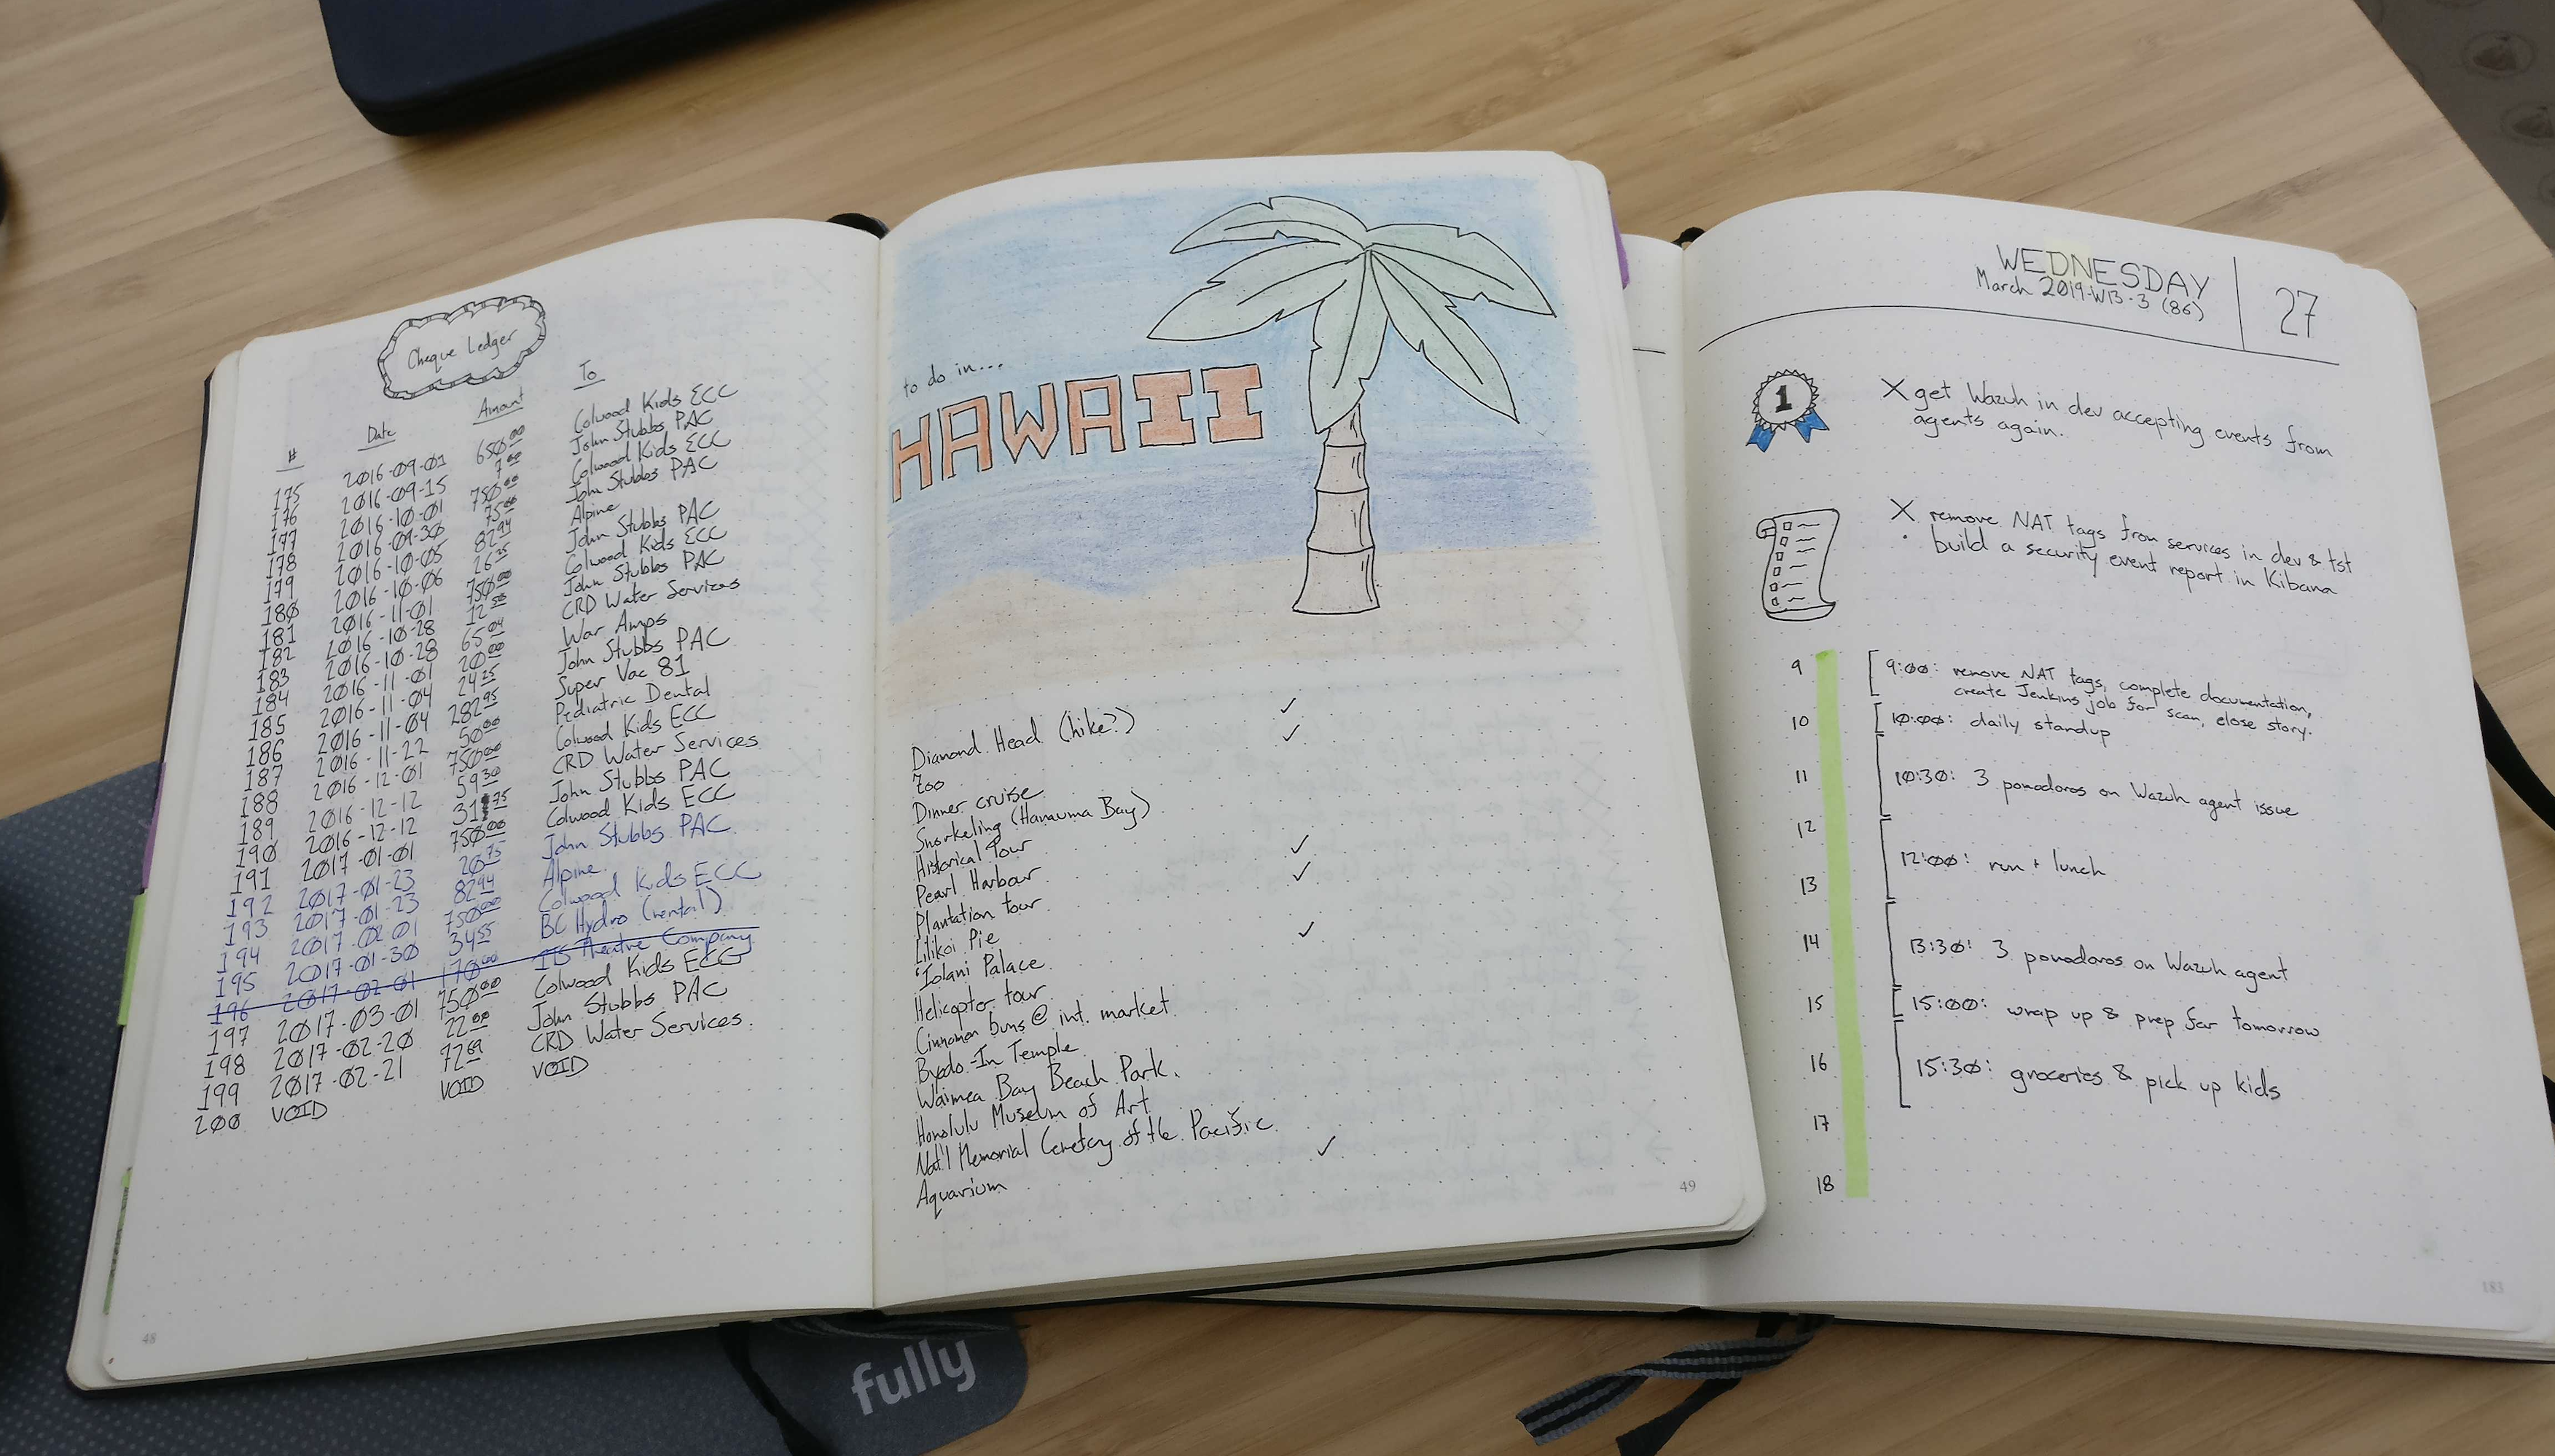 Cheque Ledger
# Date Amount To
175 2016-09-01 650 00 Colwood Kids ECC
176 2016-09-15 7 00 John Stubbs PAC
177 2016-10-01 750 00 Colwood Kids ECC
178 2016-09-30 75 00 John Stubbs PAC
179 2016-10-05 82 94 Alpine
180 2016-10-06 26 25 John Stubbs PAC
181 2016-11-01 750 00 Colwood Kids ECC
182 2016-10-28 12 50 John Stubbs PAC
183 2016-10-28 65 04 CRD Water Services
184 2016-11-01 20 00 War Amps
185 2016-11-04 24 25 John Stubbs PAC
186 2016-11-04 282 95 Super Vac 81
187 2016-11-22 50 00 Pediatric Dental
188 2016-12-01 750 00 Colwood Kids ECC
189 2016-12-12 59 30 CRD Water Services
190 2016-12-12 31 75 John Stubbs PAC
191 2017-01-01 750 00 Colwood Kids ECC
192 2017-01-23 20 75 John Stubbs PAC
193 2017-01-23 82 94 Alpine
194 2017-02-01 750 00 Colwood Kids ECC
195 2017-01-30 34 55 BC Hydro (rental)
196 2017-02-01 170 00 Theatre Company
197 2017-03-01 750 00 Colwood Kids ECC
198 2017-02-20 22 00 John Stubbs PAC
199 2017-02-21 72 69 CRD Water Services.
200 VOID VOID VOID
48
to do in...
HAWAII
Diamond Head (hike?) ✓
Zoo ✓
Dinner cruise
Snorkeling (Hanauma Bay)
Historical Tour ✓
Pearl Harbour ✓
Plantation tour
Lilikoi Pie ✓
'Iolani Palace
Helicopter tour
Cinnamon buns @ int. market
Byodo-In Temple
Waimea Bay Beach Park.
Honolulu Museum of Art
Nat'l Memorial Cemetery of the Pacific
Aquarium ✓
49
WEDNESDAY
March 2019-W13-3 (86)
27
1
X get Wazuh in dev accepting events from
agents again.
X remove NAT tags from services in dev & tst
· build a security event report in Kibana
9 9:00: remove NAT tags, complete documentation,
create Jenkins job for scan, close story.
10 10:00: daily standup
11 10:30: 3 pomodoros on Wazuh agent issue
12 12:00: run + lunch
13
14 13:30: 3 pomodoros on Wazuh agent
15 15:00: wrap up & prep for tomorrow
16 15:30: groceries & pick up kids
17
18
183
fully